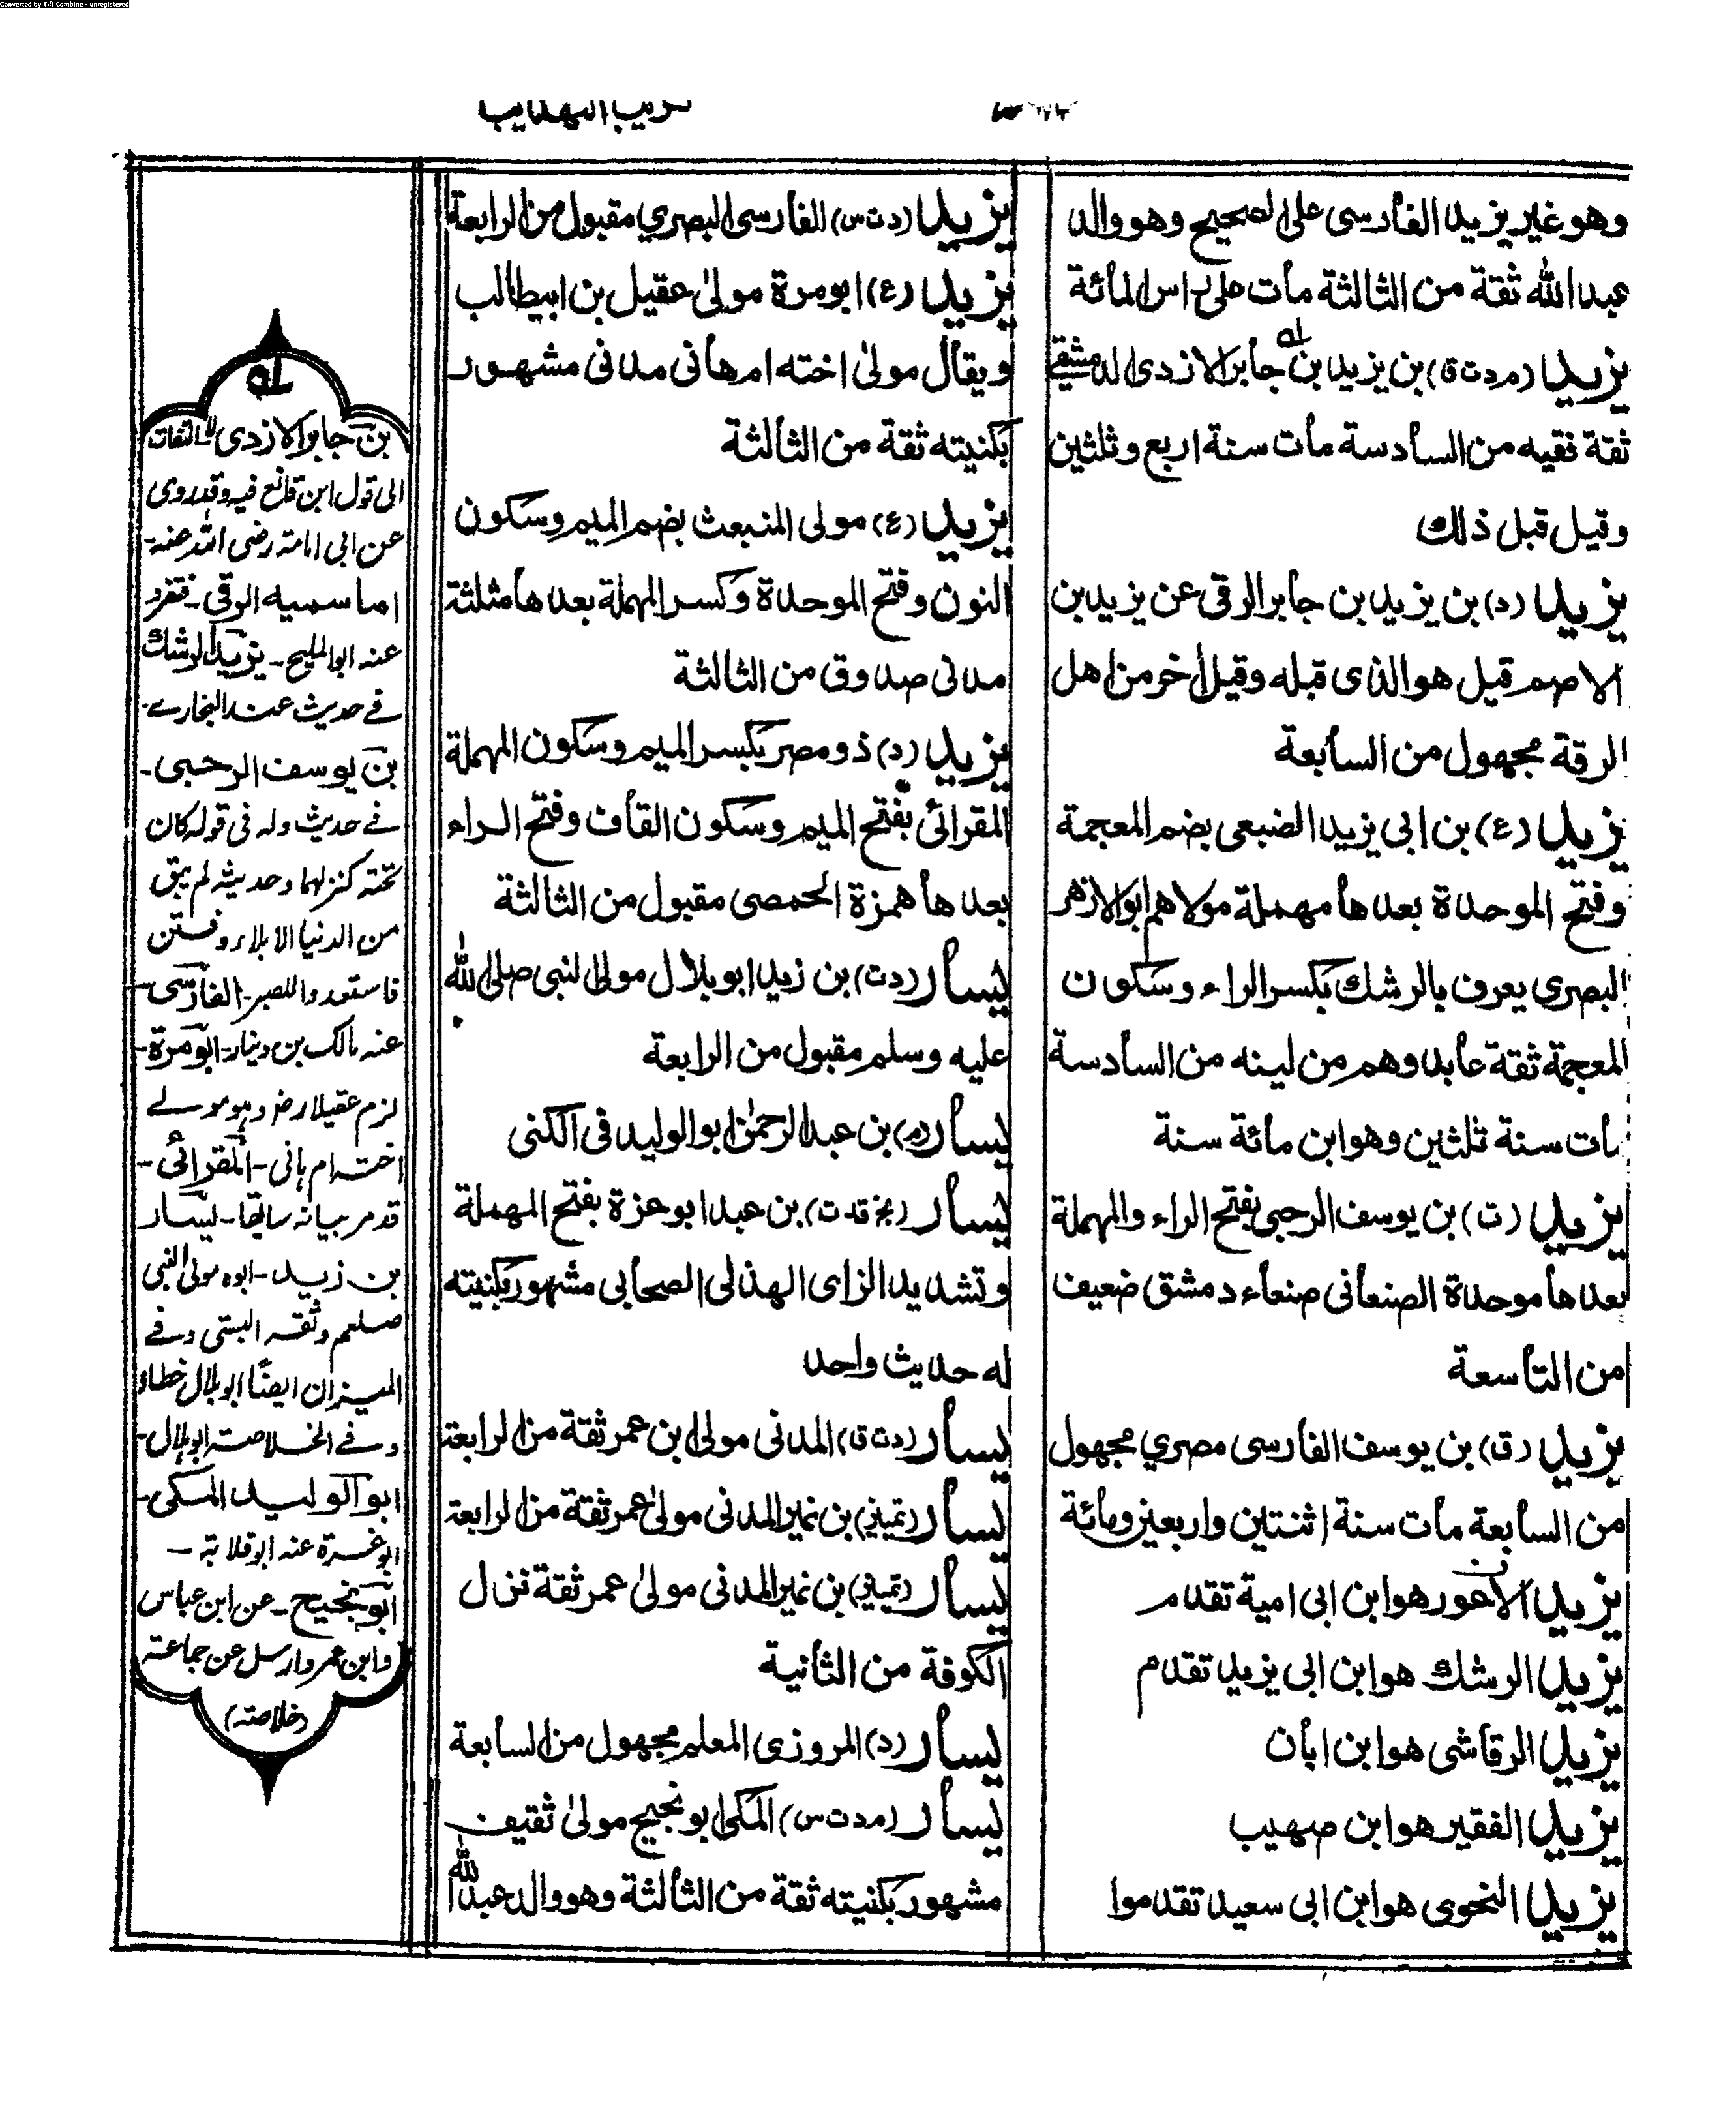 Converted by Tiff Combine - unregistered
تقريب التهذيب
وهو غير يزيد الفأرسى على الصحيح وهو والد
عبد الله ثقة من الثالثة مأت على رأس المائة
يزيد (م د ت ق) بن يزيد بن جأبر الازدى الدمشقي
ثقة فقيه من السأدسة مأت سنة اربع و ثلثين
وقيل قبل ذلك
يزيد (د) بن يزيد بن جأبر الرقى عن يزيد بن
الاصم قيل هو الذى قبله وقيل أخر من اهل
الرقة مجهول من السأبعة
يزيد (ع) بن ابى يزيد الضبعى بضم المعجمة
وفتح الموحدة بعدهأ مهملة مولاهم ابو الازهر
البصرى يعرف بالرشك بكسر الراء وسكون
المعجمة ثقة عأبد وهم من لينه من السأدسة
مأت سنة ثلثين وهو ابن مأئة سنة
يزيد (ت) بن يوسف الرحبى بفتح الراء والمهملة
بعدهأ موحدة الصنعأنى صنعأء دمشق ضعيف
من التأسعة
يزيد (ق) بن يوسف الفأرسى مصري مجهول
من السأبعة مأت سنة اثنتين واربعين ومأئة
يزيد الاعور هو ابن ابى امية تقدم
يزيد الرشك هو ابن ابى يزيد تقدم
يزيد الرقأشى هو ابن ابأن
يزيد الفقير هو ابن صهيب
يزيد النحوى هو ابن ابى سعيد تقدموا
يزيد (د ت س) الفأرسى البصري مقبول من الرابعة
يزيد (ع) ابو مرة مولى عقيل بن ابيطألب
ويقأل مولى اخته ام هأنى مدنى مشهور
بكنيته ثقة من الثألثة
يزيد (ع) مولى المنبعث بضم الميم وسكون
النون وفتح الموحدة وكسر المهملة بعدهأ مثلثة
مدنى صدوق من الثالثة
يزيد (د) ذو مصر بكسر الميم وسكون المهملة
المقرائى بفتح الميم وسكون القأف وفتح الراء
بعدهأ همزة الحمصى مقبول من الثالثة
يسأر (د ت) بن زيد ابو بلال مولى النبى صلى الله
عليه وسلم مقبول من الرابعة
يسأر (م) بن عبد الرحمن ابو الوليد فى الكنى
يسأر (بخ قد ت) بن عبد ابو عزة بفتح المهملة
وتشديد الزاى الهذلى الصحأبى مشهور بكنيته
له حديث واحد
يسأر (د ت ق) المدنى مولى ابن عمر ثقة من الرابعة
يسأر (تميز) بن نمير المدنى مولى عمر ثقة من الرابعة
يسأر (تميز) بن نمير المدنى مولى عمر ثقة نزل
الكوفة من الثأنية
يسأر (د) المروزى المعلم مجهول من السأبعة
يسأر (م د ت س) المكى ابو نجيح مولى ثقيف
مشهور بكنيته ثقة من الثألثة وهو والد عبد الله
له
بن جابر الازدى الثقات
الى قول ابن قانع فيه وقد روى
عن ابى امامة رضى الله عنه -
اما سميه الرقى - فتفرد
عنه ابو المليح - يزيد الرشك
فے حديث عند البخارے -
بن يوسف الرحبى -
فے حديث وله فى قوله كان
تحته كنز لهما وحديثه لم يبق
من الدنيا الا بلاء وفتن
فاستعدوا للصبر - الفارسى -
عنه مالك بن دينار - ابو مرة -
لزم عقيلا رض وهو مولے
اخته ام ہانى - المقرائى -
قدمر بيانه سابقا - يسار
بن زيد - ابوه مولى النبى
صلعم وثقه البستى وفے
الميزان ايضًا ابو بلال خطاء
وفے الخلاصة ابو ہلال -
ابو الوليد المكى -
ابو عزة عنه ابو قلابة -
ابو نجيح - عن ابن عباس
وابن عمر وارسل عن جماعة
(خلاصته)